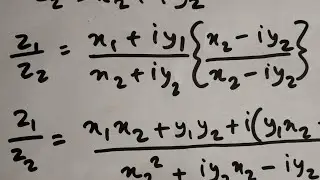 z₁/z₂ = (x₁ + iy₁)/(x₂ + iy₂) {(x₂ - iy₂)/(x₂ - iy₂)}
z₁/z₂ = x₁x₂ + y₁y₂ + i(y₁x₂ / x₂² + iy₂x₂ - iy₂